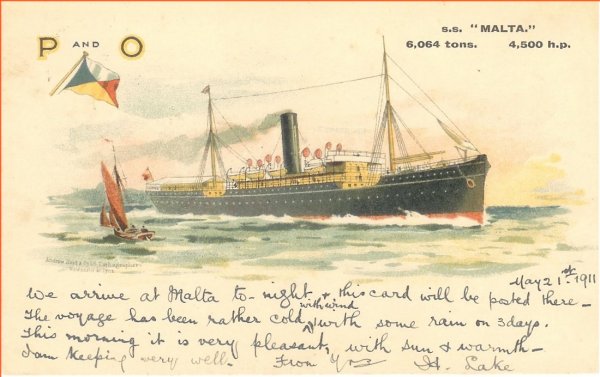 P AND O
S.S. "MALTA."
6,064 tons. 4,500 h.p.
May 21st. 1911
We arrive at Malta to-night & this card will be posted there –
The voyage has been rather cold, with wind, with some rain on 3 days.
This morning it is very pleasant, with sun & warmth –
I am keeping very well. From Yrs H. Lake